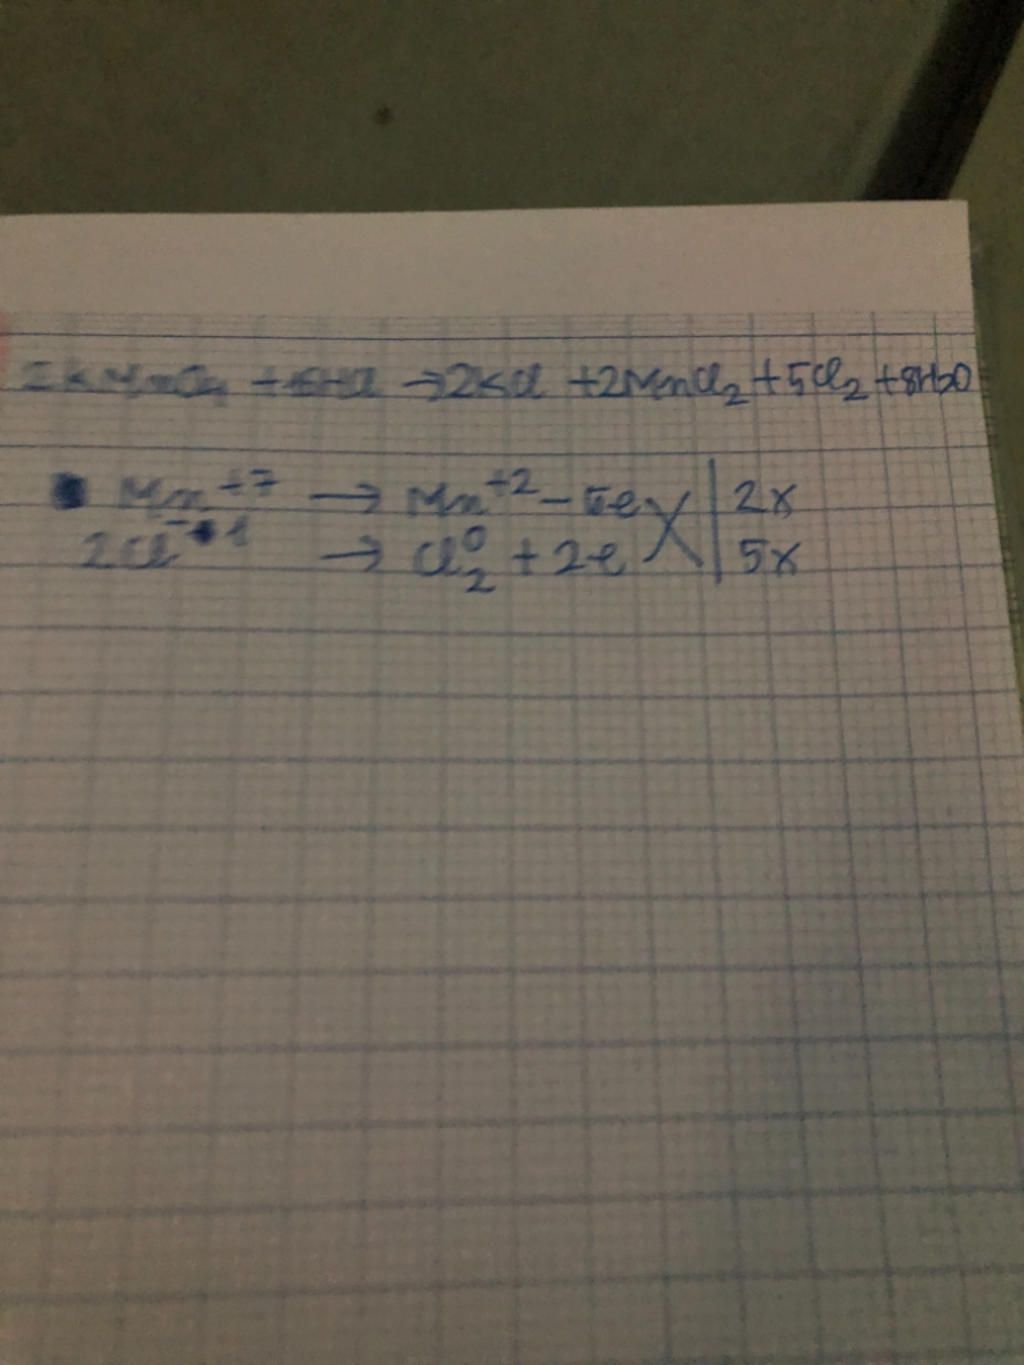 2KMnO4 + 16HCl → 2KCl + 2MnCl2 + 5Cl2 + 8H2O
Mn+7 → Mn+2 - 5e | 2x
2Cl-1 → Cl2 0 + 2e | 5x